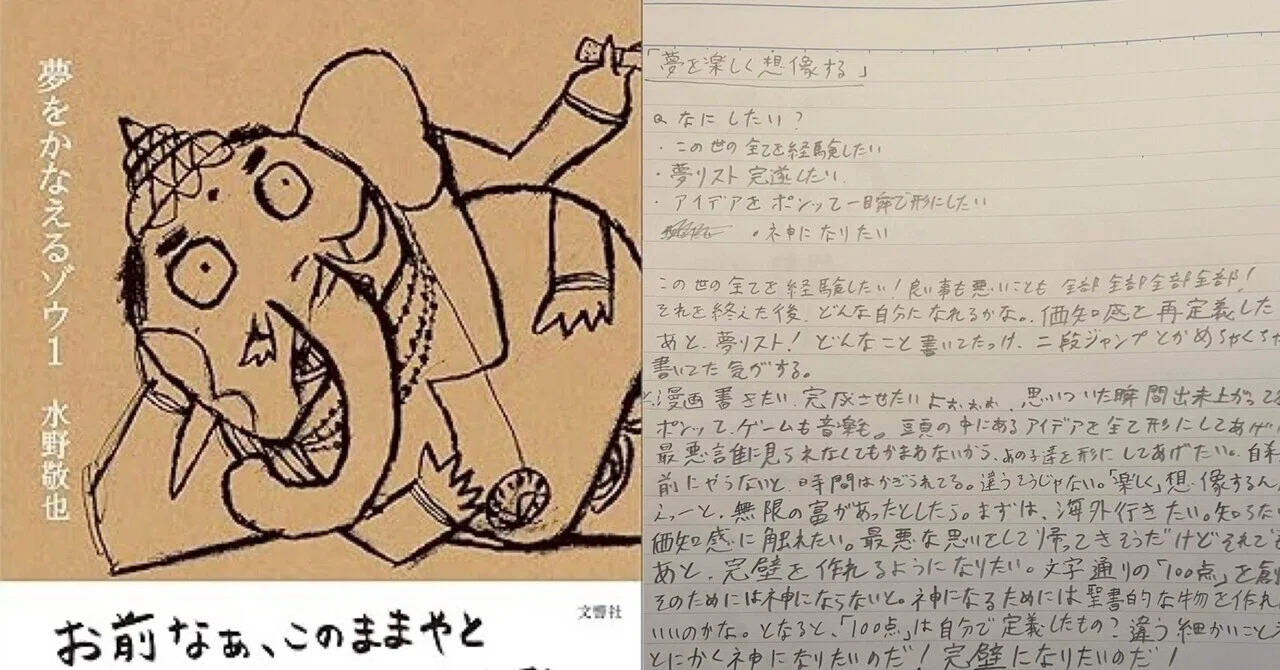 夢をかなえるゾウ1 水野敬也
文響社
お前なぁ、このままやと
「夢を楽しく想像する」
Q なにしたい?
・この世の全てを経験したい
・夢リスト完遂したい
・アイデアをポンって一瞬で形にしたい
・神になりたい
この世の全てを経験したい!良い事も悪いことも 全部全部全部全部!
それを終えた後、どんな自分になれるかな。価知感を再定義した
あと、夢リスト!どんなこと書いてたっけ、二段ジャンプとかめちゃくちゃ
書いてた気がする。
漫画書きたい、完成させたい、思いついた瞬間出来上がって
ポンって、ゲームも音楽も。頭の中にあるアイデアを全て形にしてあげ
最悪誰に見られなくてもかまわないから、あの子達を形にしてあげたい。
前にやらないと、時間はかぎられてる。違うそうじゃない。「楽しく」想像するん
えっーと、無限の富があったとしたら。まずは、海外行きたい。知らな
価知感に触れたい。最悪な思いをして帰ってきそうだけどそれでも
あと、完壁を作れるようになりたい。文字通りの「100点」を創
そのためには神にならないと。神になるためには聖書的な物を作れ
いいのかな。となると、「100点」は自分で定義したもの?違う細かいこと
とにかく神になりたいのだ!完壁になりたいのだ!